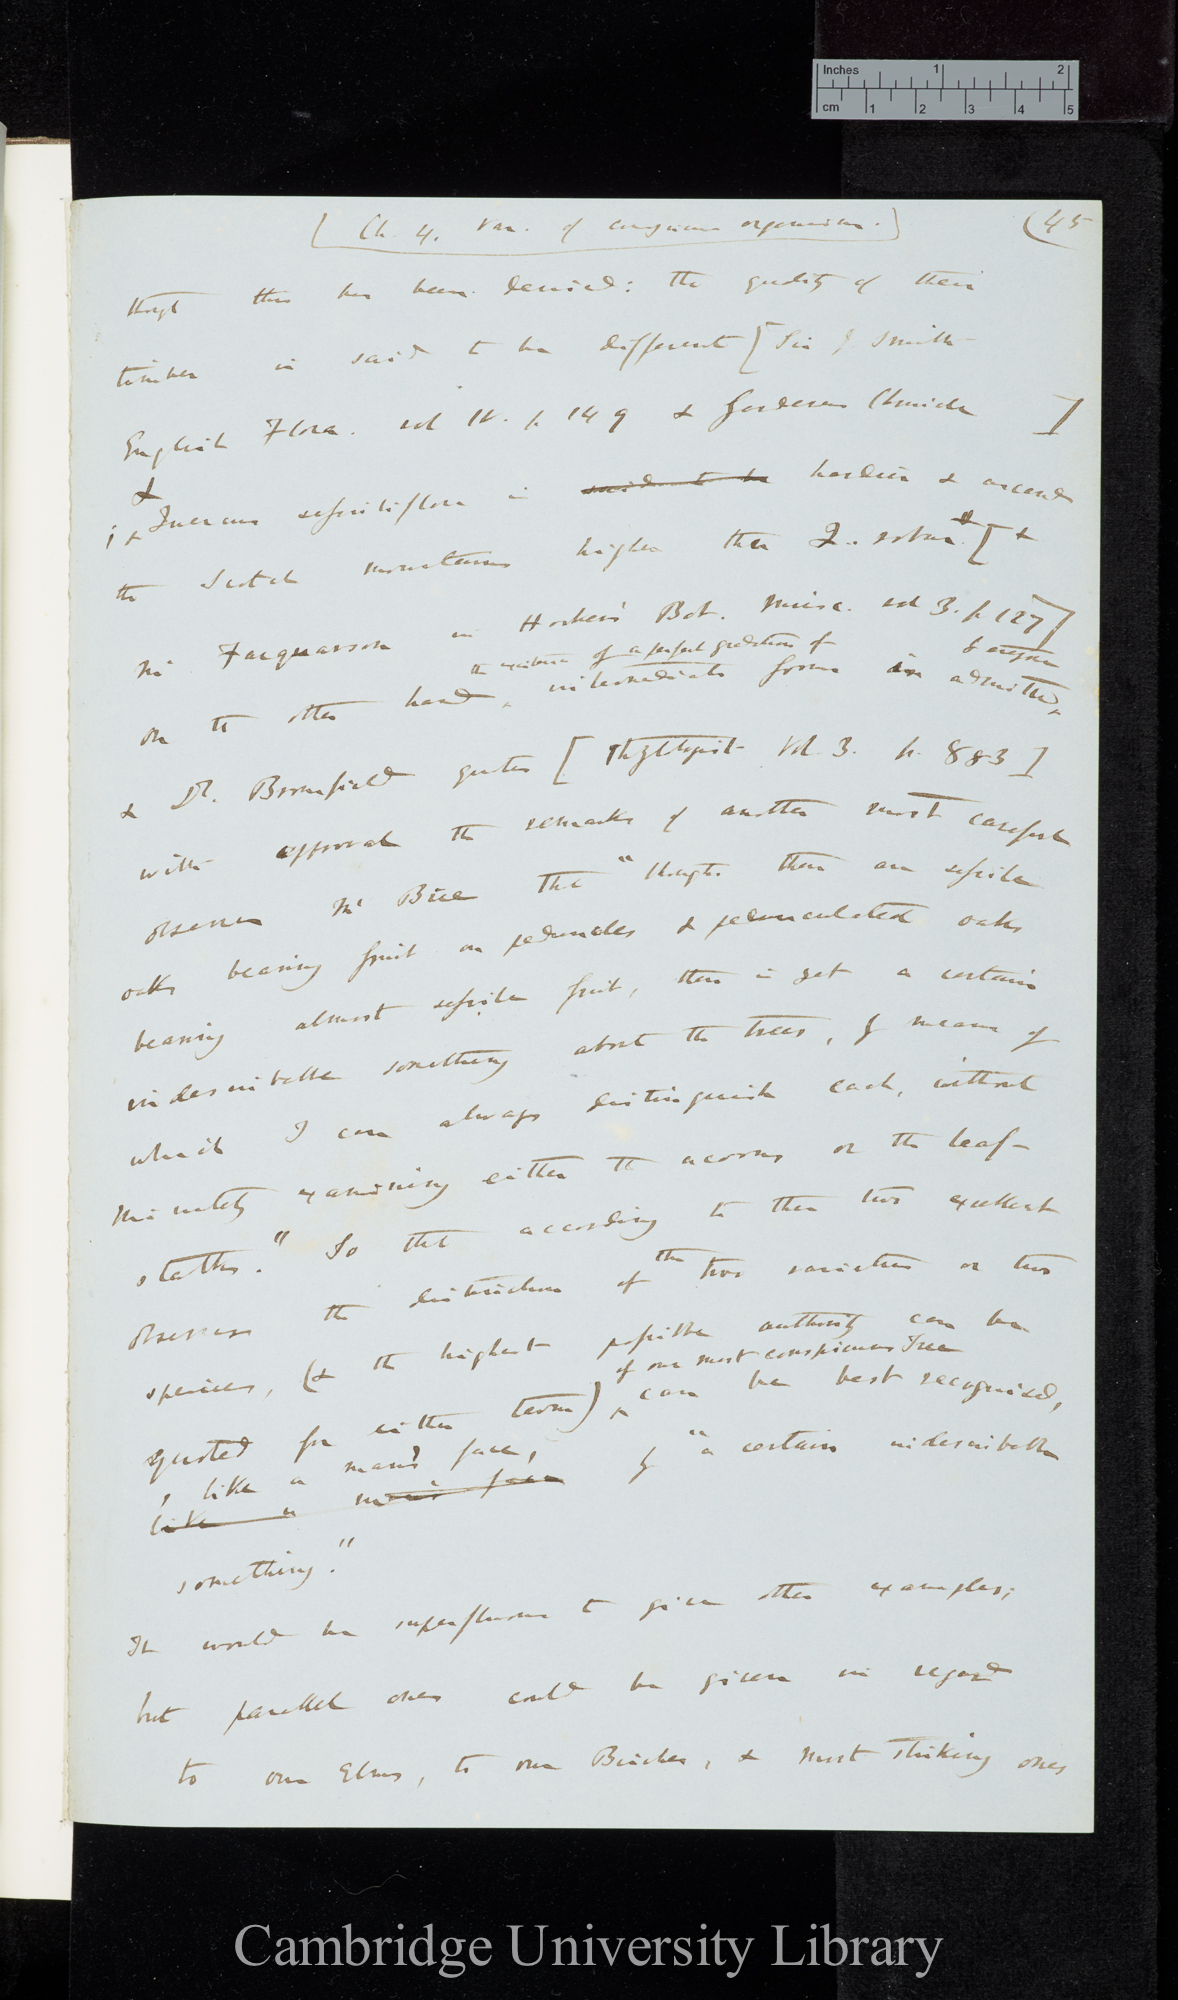 Inches 1 2
cm 1 2 3 4 5
[Ch. 4. Var. of conspicuous organisms.] (45
though this has been denied: the quality of their
timber is said to be different [Sir J. Smith
English Flora. vol IV. p. 149 & Gardeners Chronicle ]
&
; Quercus sessiliflora is said to be hardier & ascend
the Scotch mountains higher than Q. robur [&
Mr Farquarson in Hooker's Bot. Misc. vol 3. p 127]
the existence of a perfect gradation of by everyone
on the other hand, intermediate forms is admitted,
& Dr. Bromfield quotes [Phytologist Vol 3. p. 883]
with approval the remarks of another most careful
observer Mr Bree that "though there are sessile
oaks bearing fruit on peduncles & pedunculated oaks
bearing almost sessile fruit, there is yet a certain
indescribable something about the trees, by means of
which I can always distinguish each, without
minutely examining either the acorns or the leaf-
stalks." So that according to these two excellent
the
observers the distinction of two varieties or two
species, (& the highest possible authority can be
of our most conspicuous Tree
quoted for either term) can be best recognised,
, like a man's face,
like a man's face by "a certain indescribable
something."
It would be superfluous to give other examples;
but parallel ones could be given in regard
to our Elms, to our Birches, & most striking ones
Cambridge University Library